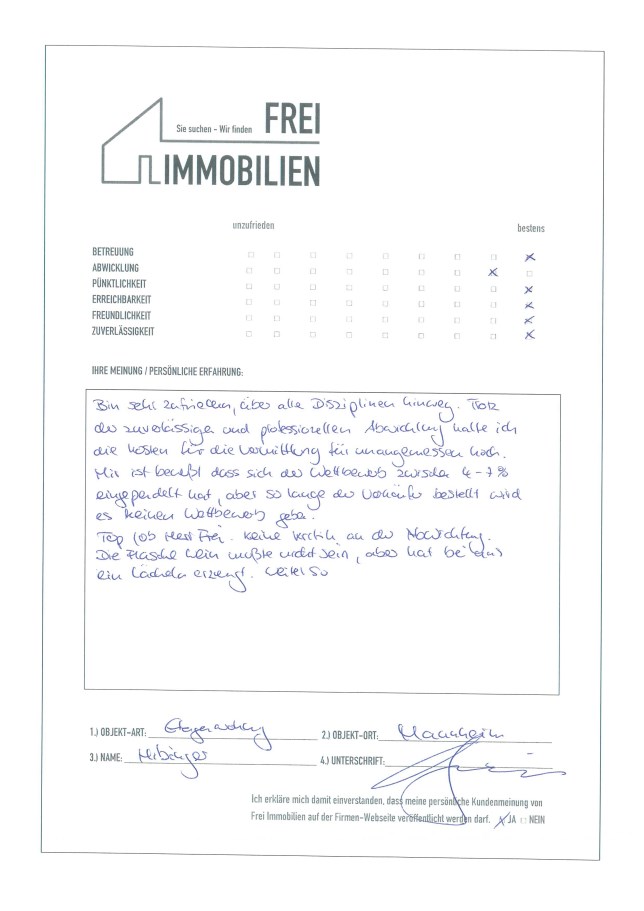 Sie suchen - Wir finden FREI
IMMOBILIEN
unzufrieden bestens
BETREUUNG
ABWICKLUNG
PÜNKTLICHKEIT
ERREICHBARKEIT
FREUNDLICHKEIT
ZUVERLÄSSIGKEIT
IHRE MEINUNG / PERSÖNLICHE ERFAHRUNG:
Bin sehr zufrieden, über alle Disziplinen hinweg. Trotz
der zuverlässigen und professionellen Abwicklung halte ich
die Kosten für die Vermittlung für unangemessen hoch.
Mir ist bewußt dass sich der Wettbewerb zwischen 4-7%
eingependelt hat, aber so lange der Verkäufer bestellt wird
es keinen Wettbewerb geben.
Top Job Herr Frei. Keine Kritik an der Abwicklung.
Die Flasche Wein mußte nicht sein, aber hat bei uns
ein Lächeln erzeugt. Weiter so
1.) OBJEKT-ART: 2.) OBJEKT-ORT: Mannheim
3.) NAME: 4.) UNTERSCHRIFT:
Ich erkläre mich damit einverstanden, dass meine persönliche Kundenmeinung von
Frei Immobilien auf der Firmen-Webseite veröffentlicht werden darf. JA NEIN